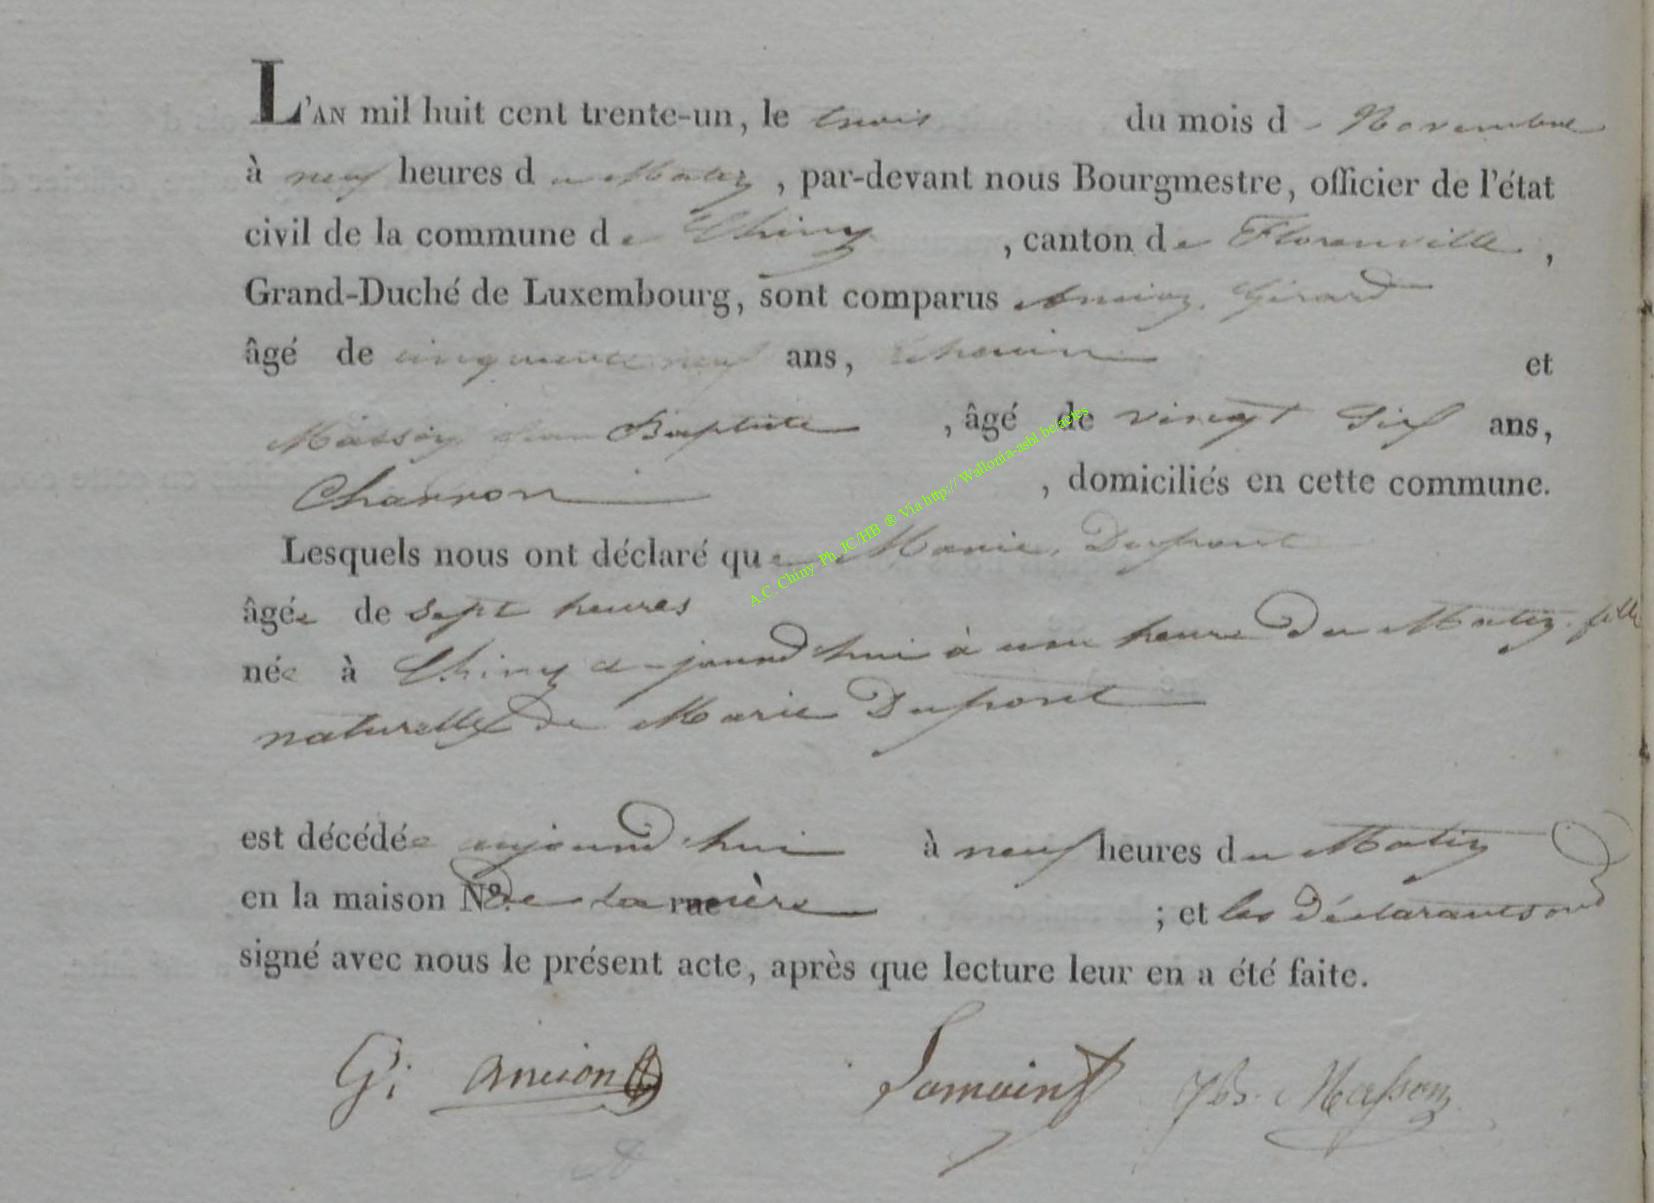 L'AN mil huit cent trente-un, le trois du mois de Novembre
à neuf heures du Matin, par-devant nous Bourgmestre, officier de l'état
civil de la commune de Chiny, canton de Florenville,
Grand-Duché de Luxembourg, sont comparus Ancion Gérard
âgé de cinquante neuf ans, et
Masson Jean Baptiste, âgé de vingt Six ans,
Charron, domiciliés en cette commune.
Lesquels nous ont déclaré que Marie Dupont
âgée de Sept heures
née à Chiny aujourd'hui à une heure du Matin fille
naturelle de Marie Dupont
est décédée aujourd'hui à neuf heures du Matin
en la maison No. de la rue mère ; et les Déclarants ont
signé avec nous le présent acte, après que lecture leur en a été faite.
G: Ancion JB. Masson
A.C. Chiny Ph. JC/HB ® Via http:// Wallonia-asbl.be actes